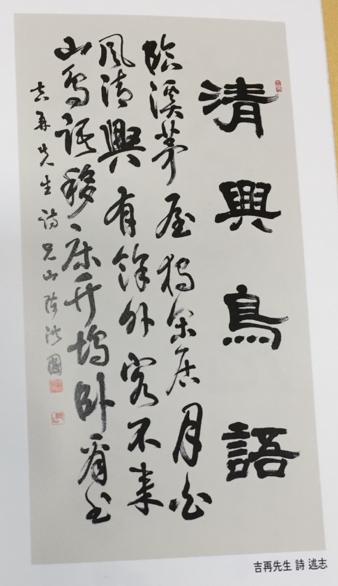 清興鳥語
臨溪茅屋獨閑居月白
風清興有餘外客不來
山鳥語移床竹塢臥看書
吉再先生詩
吉再先生 詩 述志